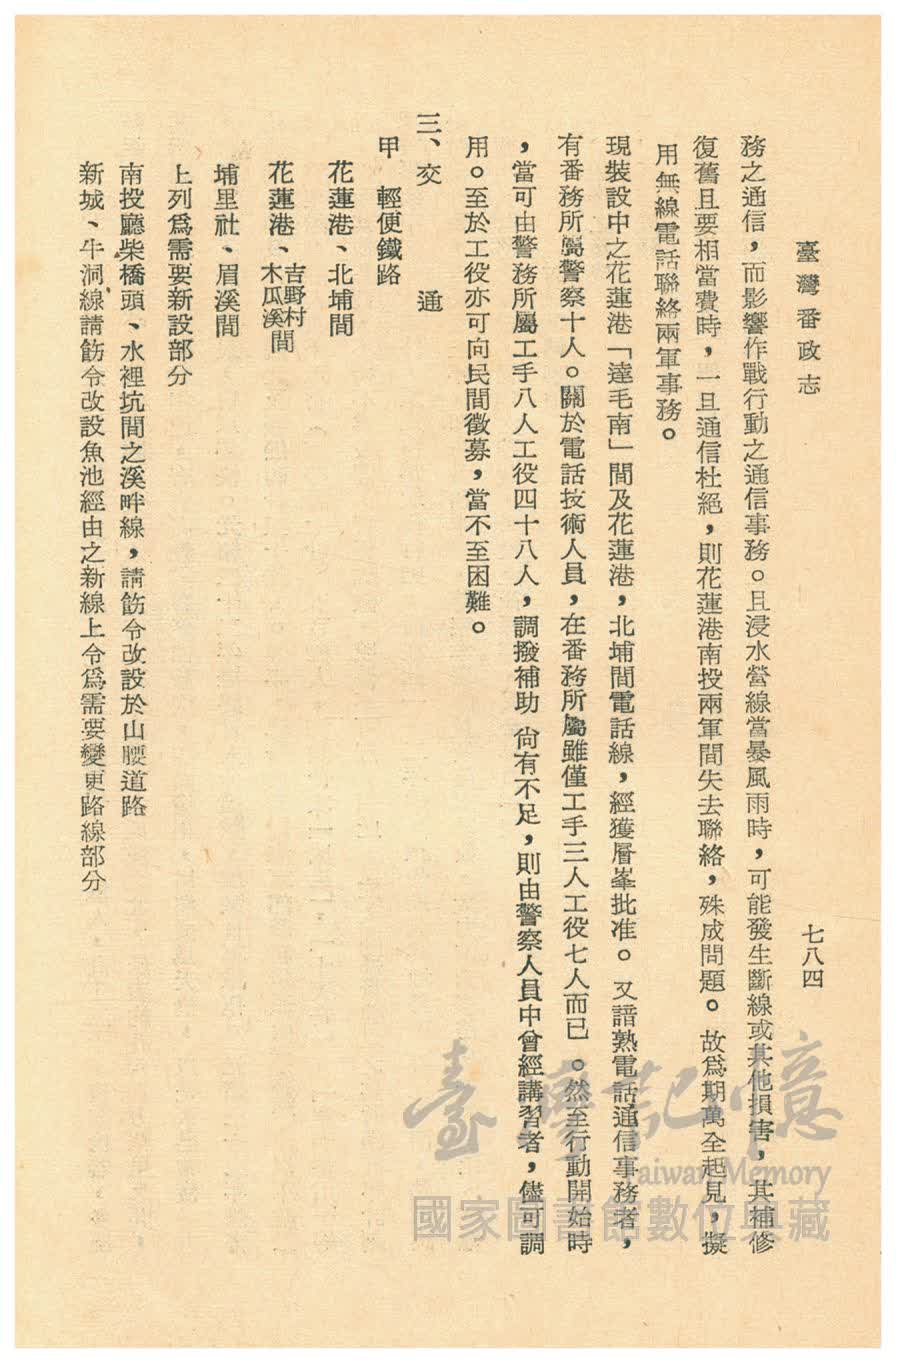 臺灣番政志
七八四
務之通信，而影響作戰行動之通信事務。且浸水營線當暴風雨時，可能發生斷線或其他損害，其補修
復舊且要相當費時，一旦通信杜絕，則花蓮港南投兩軍間失去聯絡，殊成問題。故爲期萬全起見，擬
用無線電話聯絡兩軍事務。
現裝設中之花蓮港「達毛南」間及花蓮港，北埔間電話線，經獲層峯批准。又諳熟電話通信事務者，
有番務所屬警察十人。關於電話技術人員，在番務所屬雖僅工手三人工役七人而已。然至行動開始時
，當可由警務所屬工手八人工役四十八人，調撥補助 尙有不足，則由警察人員中曾經講習者，儘可調
用。至於工役亦可向民間徵募，當不至困難。
三、交　　通
甲　輕便鐵路
花蓮港、北埔間
花蓮港、吉野村木瓜溪間
埔里社、眉溪間
上列爲需要新設部分
南投廳柴橋頭、水裡坑間之溪畔線，請飭令改設於山腰道路
新城、牛洞線請飭令改設魚池經由之新線上令爲需要變更路線部分
臺灣記憶
Taiwan Memory
國家圖書館數位典藏